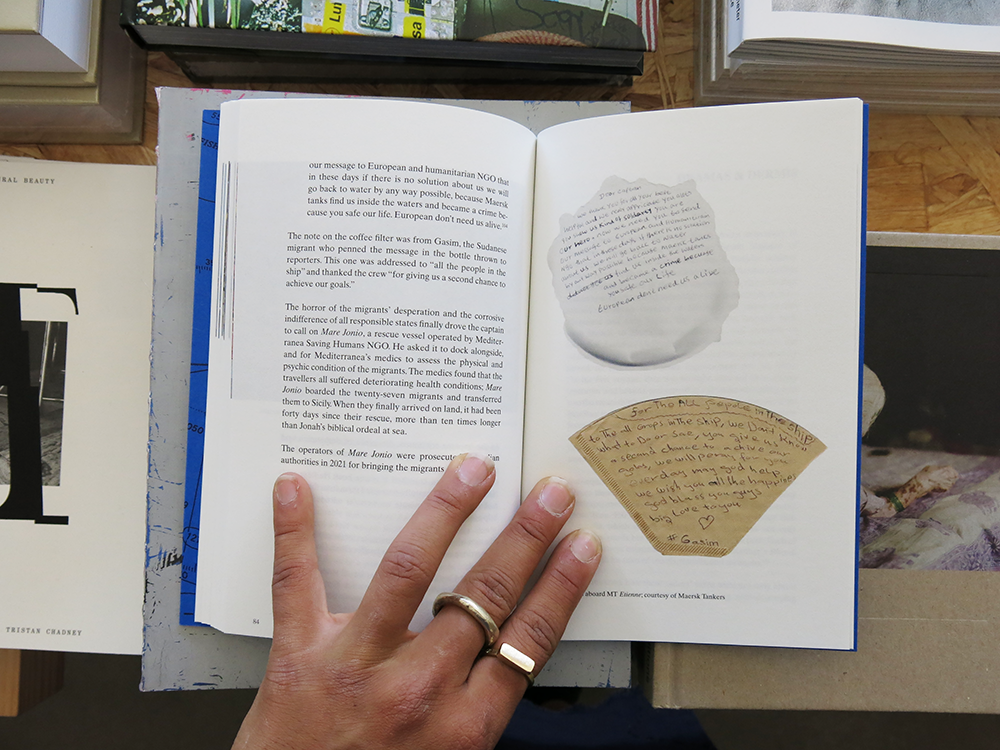 URAL BEAUTY
TRISTAN CHADNEY
our message to European and humanitarian NGO that
in these days if there is no solution about us we will
go back to water by any way possible, because Maersk
tanks find us inside the waters and became a crime be-
cause you safe our life. European don't need us alive.
The note on the coffee filter was from Gasim, the Sudanese
migrant who penned the message in the bottle thrown to
reporters. This one was addressed to “all the people in the
ship” and thanked the crew “for giving us a second chance to
achieve our goals.”
The horror of the migrants' desperation and the corrosive
indifference of all responsible states finally drove the captain
to call on Mare Jonio, a rescue vessel operated by Mediter-
ranea Saving Humans NGO. He asked it to dock alongside,
and for Mediterranea's medics to assess the physical and
psychic condition of the migrants. The medics found that the
travellers all suffered deteriorating health conditions; Mare
Jonio boarded the twenty-seven migrants and transferred
them to Sicily. When they finally arrived on land, it had been
forty days since their rescue, more than ten times longer
than Jonah's biblical ordeal at sea.
The operators of Mare Jonio were prosecuted
authorities in 2021 for bringing the migrants
84
Dear captain
and became a crime because
you safe our Life
European don't need us a Live
For The ALL People in the ship
to The all crops in the ship, we Don't know
what to Do or Sae, you give us
a second chance to achive our
goals, we will peray for you
everday may god help
we wish you all the happiness
god blass you guys
big Love to you
# Gasim
aboard MT Etienne; courtesy of Maersk Tankers